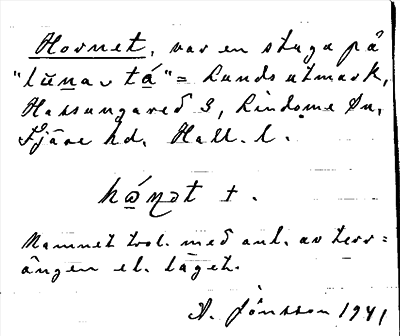 Hornet, var en stuga på
"lũnav tá" = Lunds utmark,
Hassungared 3, Lindome sn,
Fjäre hd. Hall. l.
hánət +.
Namnet trol. med anl. av terr=
ängen el. läget.
A. Jönsson 1941